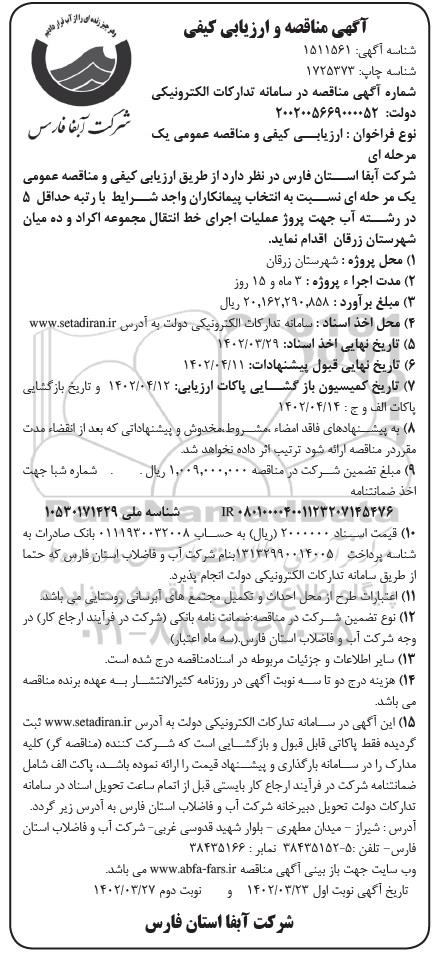 هو چیز زنده‌ای را از آب قرار دادیم
شرکت آبفا فارس
آگهی مناقصه و ارزیابی کیفی
شناسه آگهی: ۱۵۱۱۵۶۱
شناسه چاپ: ۱۷۲۵۳۷۳
شماره آگهی مناقصه در سامانه تدارکات الکترونیکی
دولت: ۲۰۰۲۰۰۵۶۶۹۰۰۰۰۵۲
نوع فراخوان : ارزیابی کیفی و مناقصه عمومی یک
مرحله ای
شرکت آبفا استان فارس در نظر دارد از طریق ارزیابی کیفی و مناقصه عمومی
یک مر حله ای نسبت به انتخاب پیمانکاران واجد شرایط با رتبه حداقل ۵
در رشته آب جهت پروژ عملیات اجرای خط انتقال مجموعه اکراد و ده میان
شهرستان زرقان اقدام نماید.
۱) محل پروژه : شهرستان زرقان
۲) مدت اجرا ء پروژه : ۳ ماه و ۱۵ روز
۳) مبلغ برآورد : ۲۰,۱۶۲,۲۹۰,۸۵۸ ریال
۴) محل اخذ اسناد : سامانه تدارکات الکترونیکی دولت به آدرس www.setadiran.ir
۵) تاریخ نهایی اخذ اسناد: ۱۴۰۲/۰۳/۲۹
۶) تاریخ نهایی قبول پیشنهادات: ۱۴۰۲/۰۴/۱۱
۷) تاریخ کمیسیون باز گشایی پاکات ارزیابی: ۱۴۰۲/۰۴/۱۲ و تاریخ بازگشایی
پاکات الف و ج : ۱۴۰۲/۰۴/۱۴
۸) به پیشنهادهای فاقد امضاء ،مشروط،مخدوش و پیشنهاداتی که بعد از انقضاء مدت
مقرردر مناقصه ارائه شود ترتیب اثر داده نخواهد شد.
۹) مبلغ تضمین شرکت در مناقصه ۱,۰۰۹,۰۰۰,۰۰۰ ریال . . شماره شبا جهت
اخذ ضمانتنامه
IR ۰۸۰۱۰۰۰۰۴۰۰۱۱۲۳۲۰۷۱۴۵۴۷۶ شناسه ملی ۱۰۵۳۰۱۷۱۴۲۹
۱۰) قیمت اسناد ۲۰۰۰۰۰۰ (ریال) به حساب ۰۱۱۱۹۳۰۰۳۲۰۰۸ بانک صادرات به
شناسه پرداخت ۱۳۱۳۲۹۹۰۰۱۴۰۰۵بنام شرکت آب و فاضلاب استان فارس که حتما
از طریق سامانه تدارکات الکترونیکی دولت انجام پذیرد.
۱۱) اعتبارات طرح از محل احداث و تکمیل مجتمع های آبرسانی روستایی می باشد.
۱۲) نوع تضمین شرکت در مناقصه:ضمانت نامه بانکی (شرکت در فرآیند ارجاع کار) در
وجه شرکت آب و فاضلاب استان فارس.(سه ماه اعتبار)
۱۳) سایر اطلاعات و جزئیات مربوطه در اسنادمناقصه درج شده است.
۱۴) هزینه درج دو تا سه نوبت آگهی در روزنامه کثیرالانتشار به عهده برنده مناقصه
می باشد.
۱۵) این آگهی در سامانه تدارکات الکترونیکی دولت به آدرس www.setadiran.ir ثبت
گردیده فقط پاکاتی قابل قبول و بازگشایی است که شرکت کننده (مناقصه گر) کلیه
مدارک را در سامانه بارگذاری و پیشنهاد قیمت را ارائه نموده باشد، پاکت الف شامل
ضمانتنامه شرکت در فرآیند ارجاع کار بایستی قبل از اتمام ساعت تحویل اسناد در سامانه
تدارکات دولت تحویل دبیرخانه شرکت آب و فاضلاب استان فارس به آدرس زیر گردد.
آدرس : شیراز – میدان مطهری – بلوار شهید قدوسی غربی- شرکت آب و فاضلاب استان
فارس- تلفن :۵-۳۸۴۳۵۱۵۲ نمابر : ۳۸۴۳۵۱۶۶
وب سایت جهت باز بینی آگهی مناقصه www.abfa-fars.ir می باشد.
تاریخ آگهی نوبت اول ۱۴۰۲/۰۳/۲۳ و نوبت دوم ۱۴۰۲/۰۳/۲۷
شرکت آبفا استان فارس